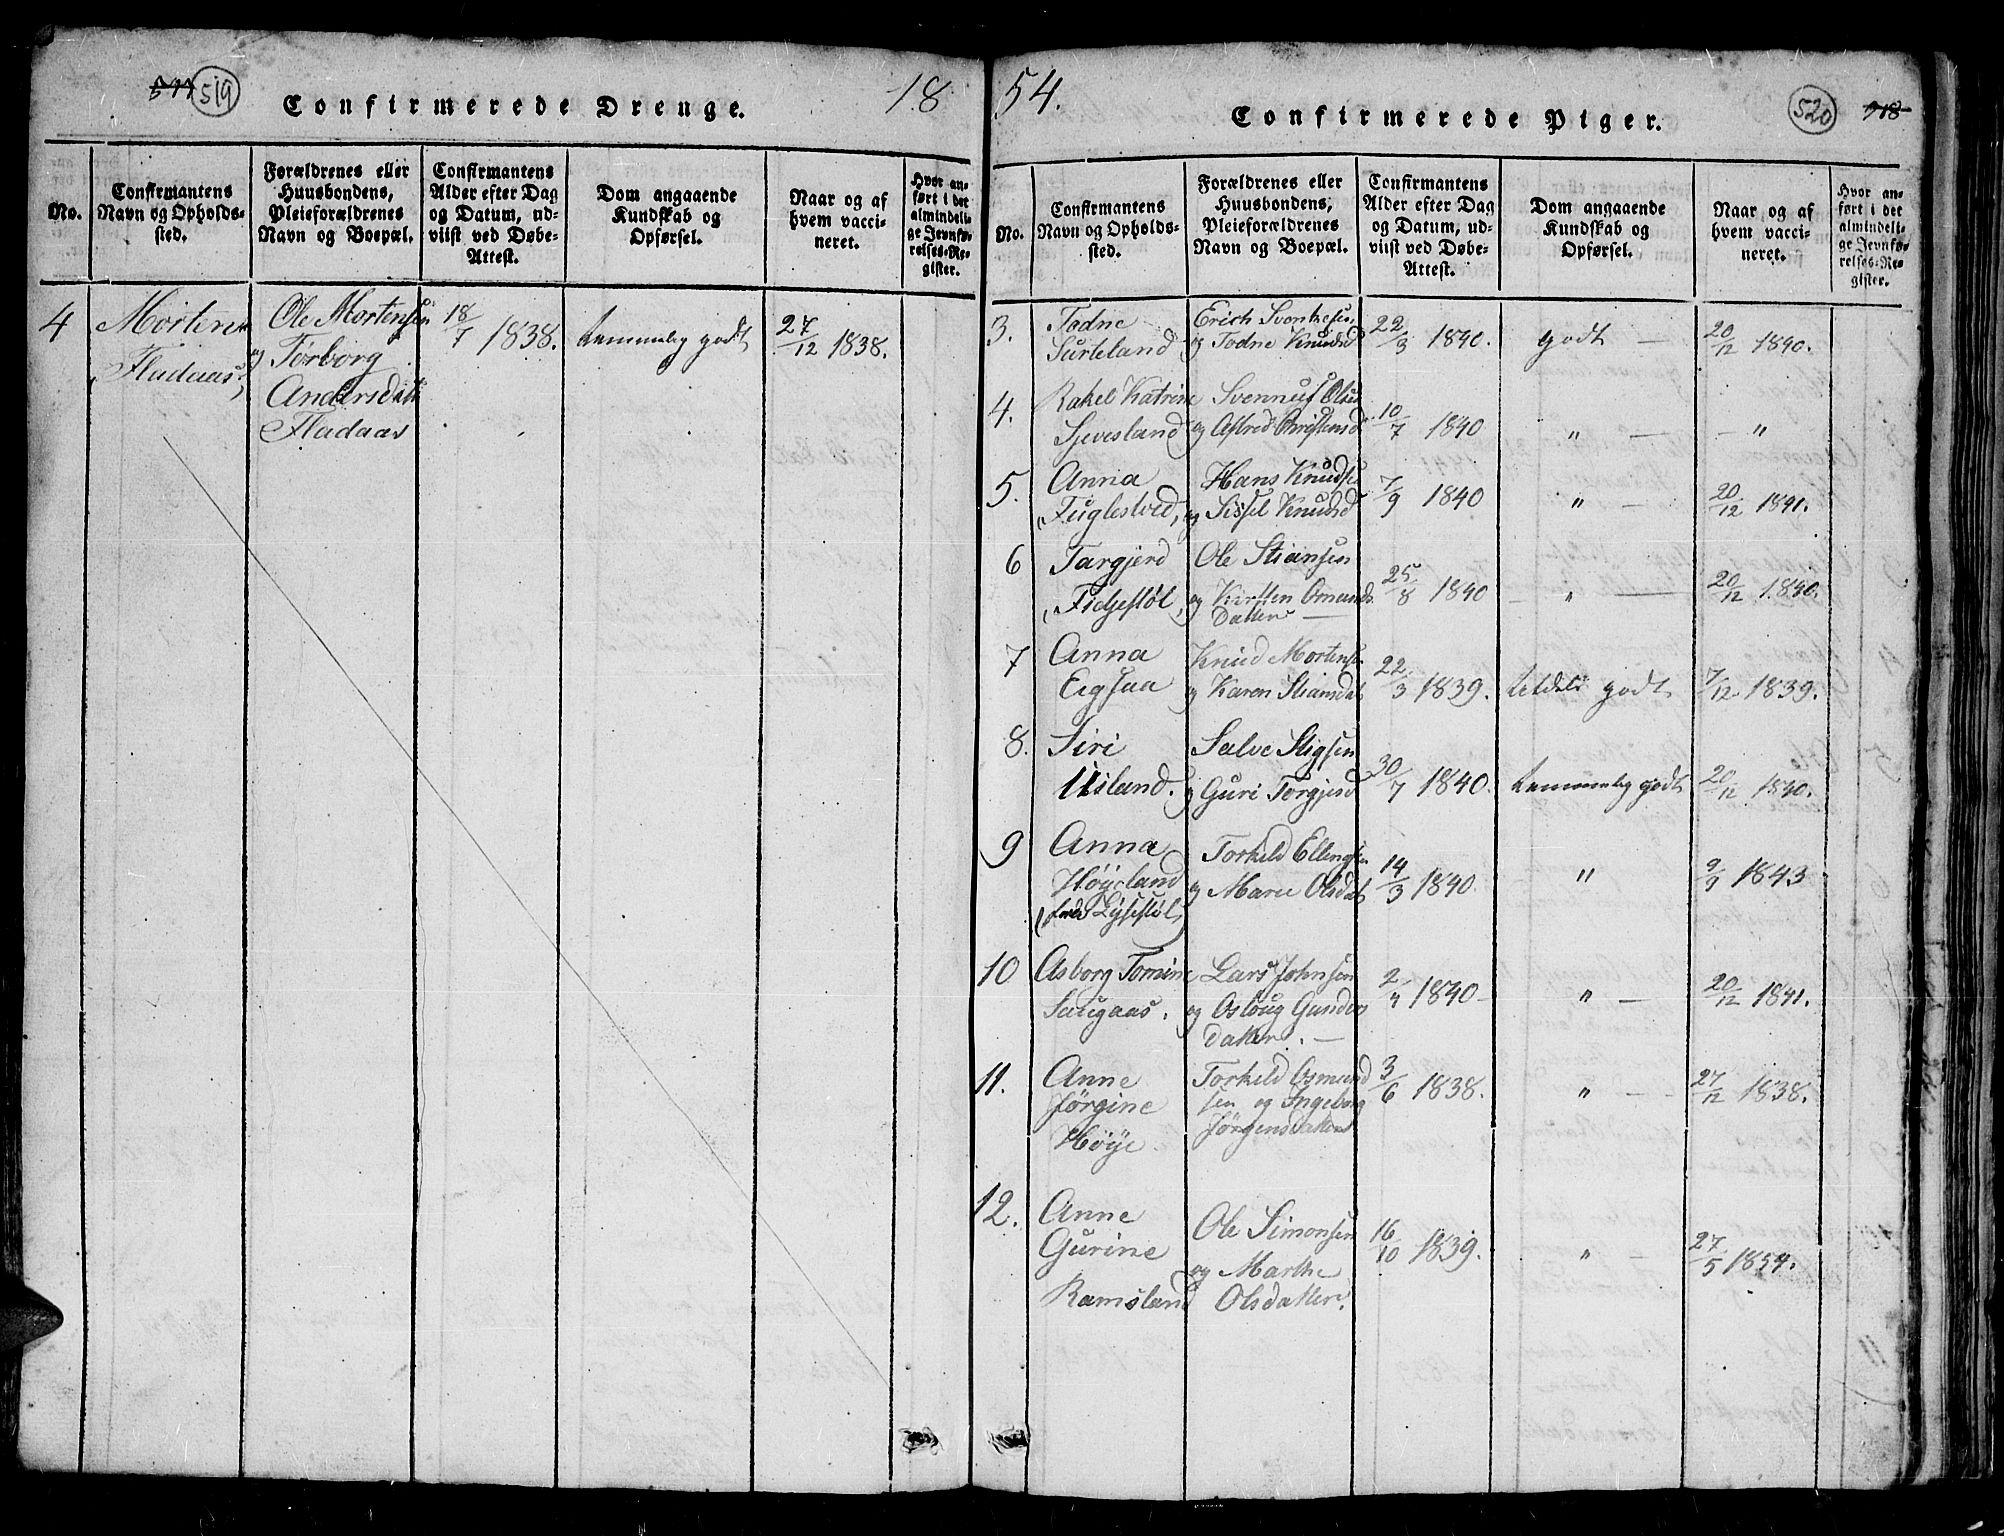 517 519
Confirmerede Drenge.
18
No.
Confirmantens
Navn og Opholds-
sted.
Forældrenes eller
Huusbondens,
Pleieforældrenes
Navn og Boepæl.
Confirmantens
Alder efter Dag
og Datum, ud-
viist ved Døbe-
Attest.
Dom angaaende
Kundskab og
Opførsel.
Naar og af
hvem vacci-
neret.
Hvor an-
ført i det
almindeli-
ge Jevnfø-
relses-Re-
gister.
4
Morten
Fladaas
Ole Mortensen
og Torborg
Andersdatt
Fladaas
18/7 1838.
temmelig godt
27/12 1838.
54.
Confirmerede Piger.
520 518
No.
Confirmantens
Navn og Opholds-
sted.
Forældrenes eller
Huusbondens,
Pleieforældrenes
Navn og Boepæl.
Confirmantens
Alder efter Dag
og Datum, ud-
viist ved Døbe-
Attest.
Dom angaaende
Kundskab og
Opførsel.
Naar og af
hvem vacci-
neret.
Hvor an-
ført i det
almindeli-
ge Jevnfø-
relses-Re-
gister.
3.
Todne
Surteland
Erich Svenkesen
og Todne Knudsd
22/3 1840.
godt —
20/12 1840.
4.
Rakel Katrine
Sjevesland
Svennuf Olsen
og Astred Christensd
10/7 1840
" —
— "
5.
Anna
Fuglestved,
Hans Knudse
og Sissel Knudsd
7/9 1840
" —
20/12 1841.
6
Targjerd
Fidjestøl,
Ole Stiansen
og Kirsten Omunds
Datter —
25/8 1840
— " —
20/12 1840.
7
Anna
Eigsaa
Knud Mortense
og Karen Stiansdat
22/3 1839.
teldels godt
7/12 1839.
8.
Siri
Usland.
Salve Stigsen
og Guri Torgjersd
30/7 1840.
temmelig godt
20/12 1840.
9
Anna
Høyeland
(fød Lysestøl)
Torkeld Ellingsen
og Marie Olsdat
14/3 1840.
"
9/9 1843
10
Asborg Tomine
Saugaas.
Lars Johnsen
og Osloug Gunders
datter. —
2/4 1840 —
" —
20/12 1841.
11.
Anne
Jørgine
Høye.
Torkeld Osmund
sen og Ingeborg
Jørgensdatter
3/6 1838.
" —
27/12 1838.
12.
Anne
Gurine
Ramsland
Ole Simonsen
og Marthe
Olsdatter.
16/10 1839.
" —
27/5 1854.